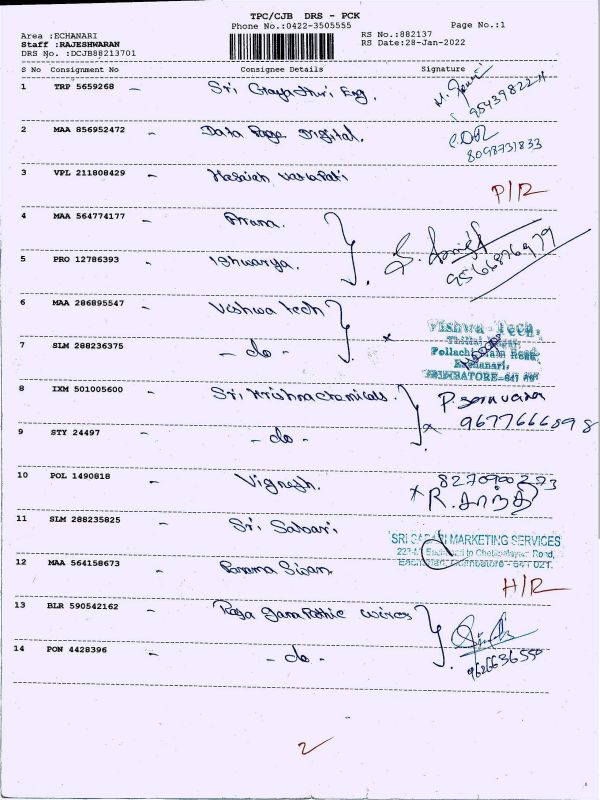 TPC/CJB DRS - PCK
Phone No.:0422-3505555 Page No.:1
Area :ECHANARI RS No.:882137
Staff :RAJESHWARAN RS Date:28-Jan-2022
DRS No. :DCJB88213701
S No Consignment No Consignee Details Signature
1 TRP 5659268 - Sri Gayathri Eng.
2 MAA 856952472 - Data Page Digital.
8098731833
3 VPL 211808429 - P/R
4 MAA 564774177 - Prana.
5 PRO 12786393 - Ishwarya. 9566876979
6 MAA 286895547 - Vishwa tech
Vishwa Tech,
7 SLM 288236375 - do -
Pollachi Main Road,
Eachanari,
COIMBATORE-641
8 IXM 501005600 - Sri Krishna chemicals. P Saravana
9677666898
9 STY 24497 - - do -
10 POL 1490818 - Vignesh. 8270900273
R. சாந்தி
11 SLM 288235825 - Sri Sabari
SRI SABARI MARKETING SERVICES
Road,
Coimbatore - 641 021.
12 MAA 564158673 - Parama Sivan H/R
13 BLR 590542162 - Raja Ganapathie wires
14 PON 4428396 - - do - 9626636550
2